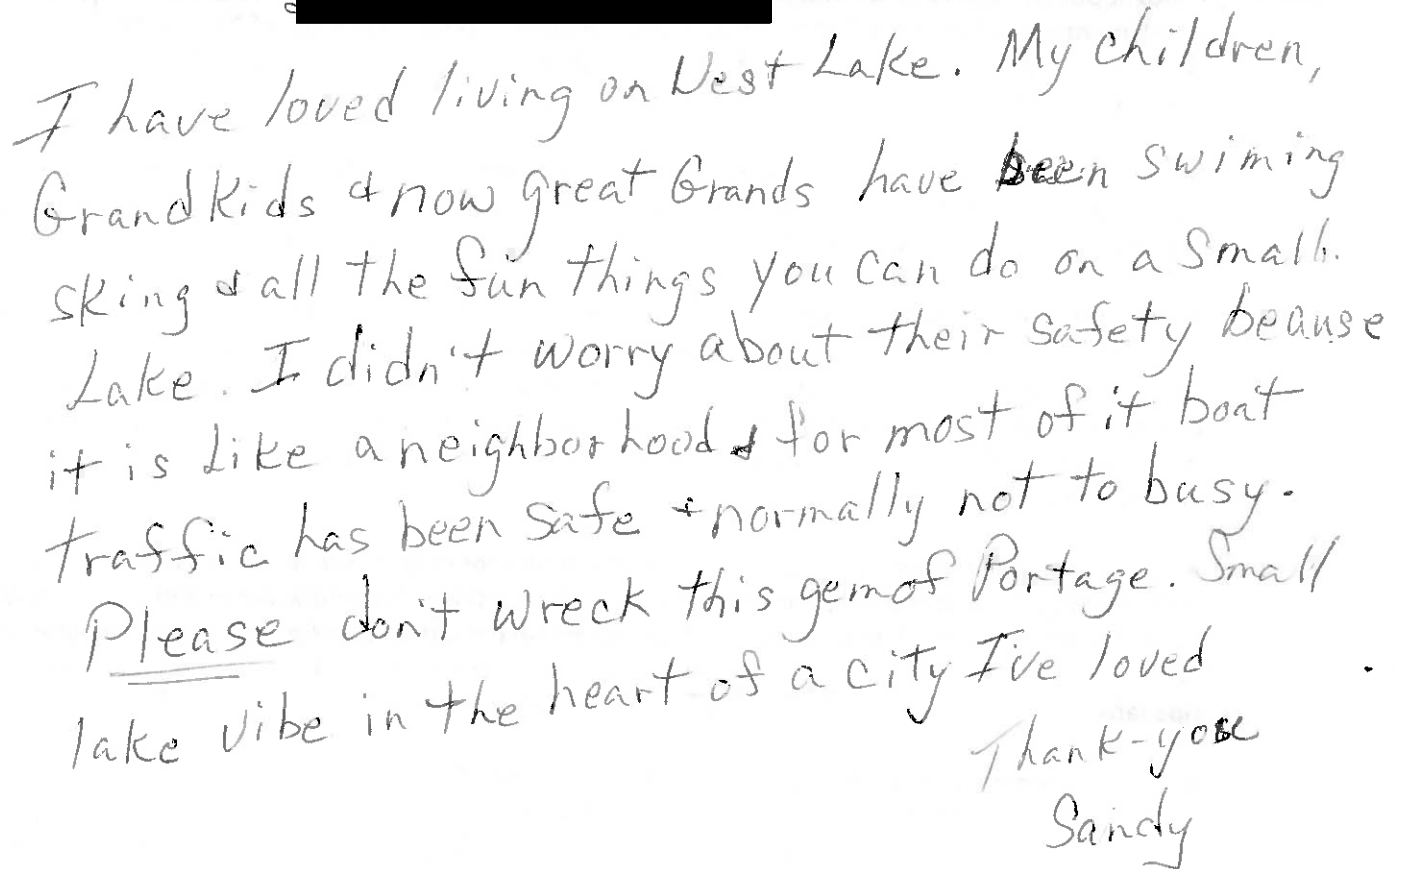 I have loved living on West Lake. My children,
Grandkids & now great Grands have been swiming
sking & all the fun things you can do on a small.
Lake. I didn't worry about their safety beause
it is Like a neighborhood & for most of it boat
traffic has been safe + normally not to busy.
Please don't wreck this gem of Portage. Small
lake vibe in the heart of a city I've loved
Thank-you
Sandy